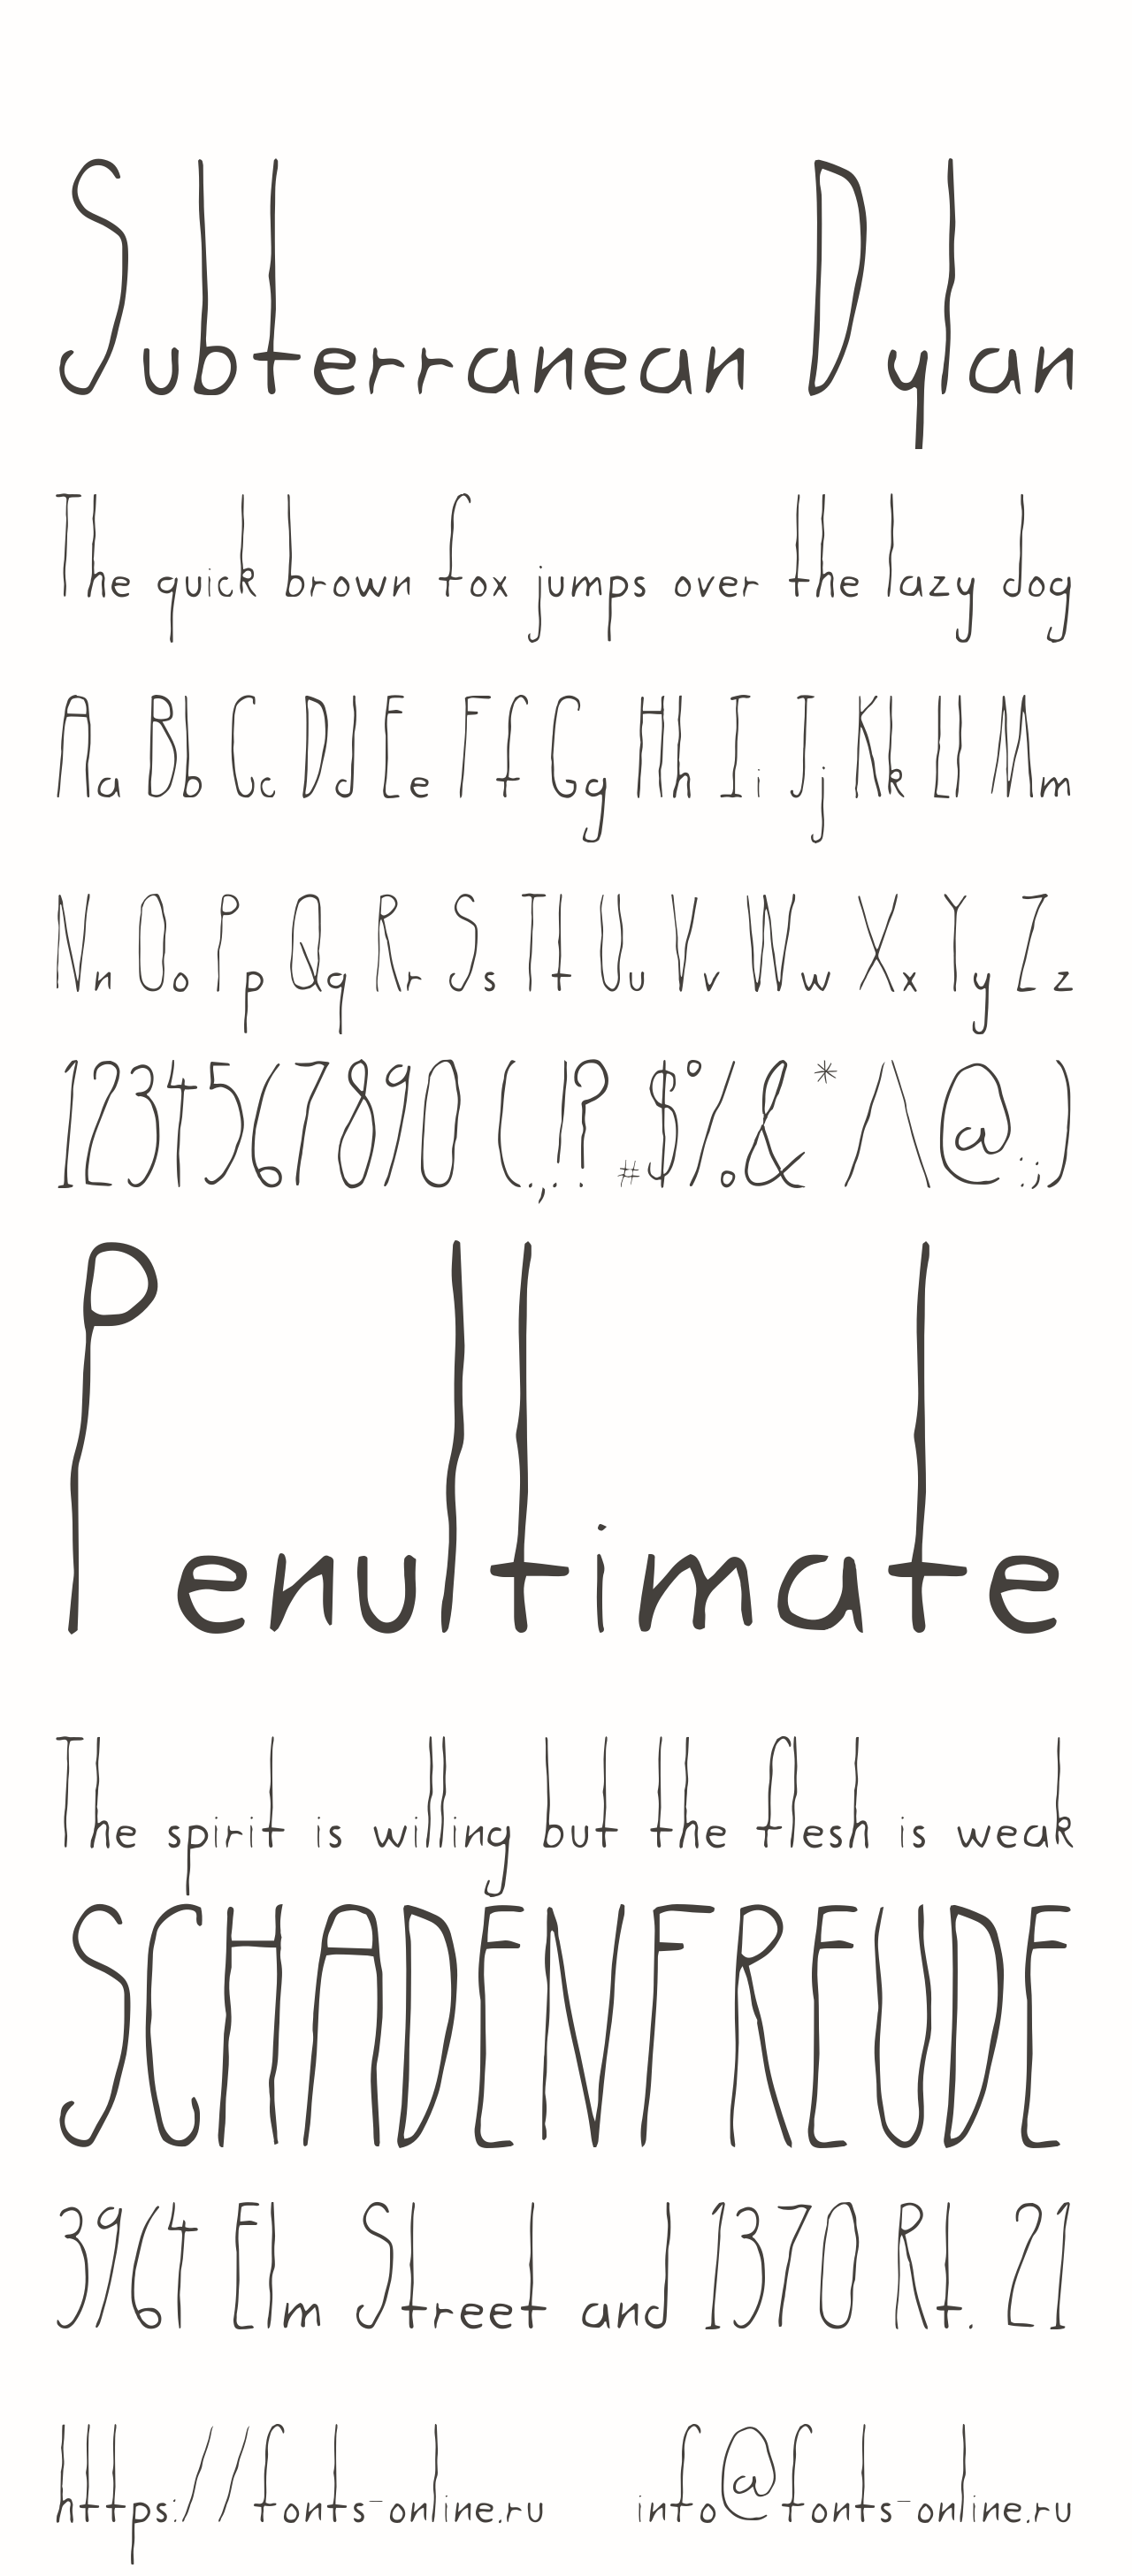 Subterranean Dylan
The quick brown fox jumps over the lazy dog
Aa Bb Cc Dd Ee Ff Gg Hh Ii Jj Kk Ll Mm
Nn Oo Pp Qq Rr Ss Tt Uu Vv Ww Xx Yy Zz
1234567890 (.,!?#$%&*/\@:;)
Penultimate
The spirit is willing but the flesh is weak
SCHADENFREUDE
3964 Elm Street and 1370 Rt. 21
https://fonts-online.ru info@fonts-online.ru